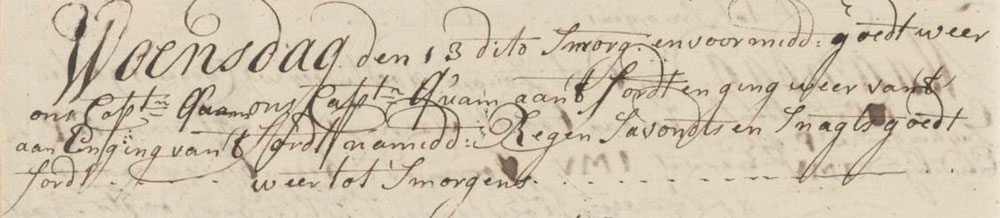 Woensdag den 13 dito Smorg: en voormidd: goedt weer
ons Capt:n Quam ons Capt:n Quam aan't fordt en ging weer van't
aan Enging van't fordt namidd: Regen Savondts en Snagts goedt
fordt weer tot Smorgens